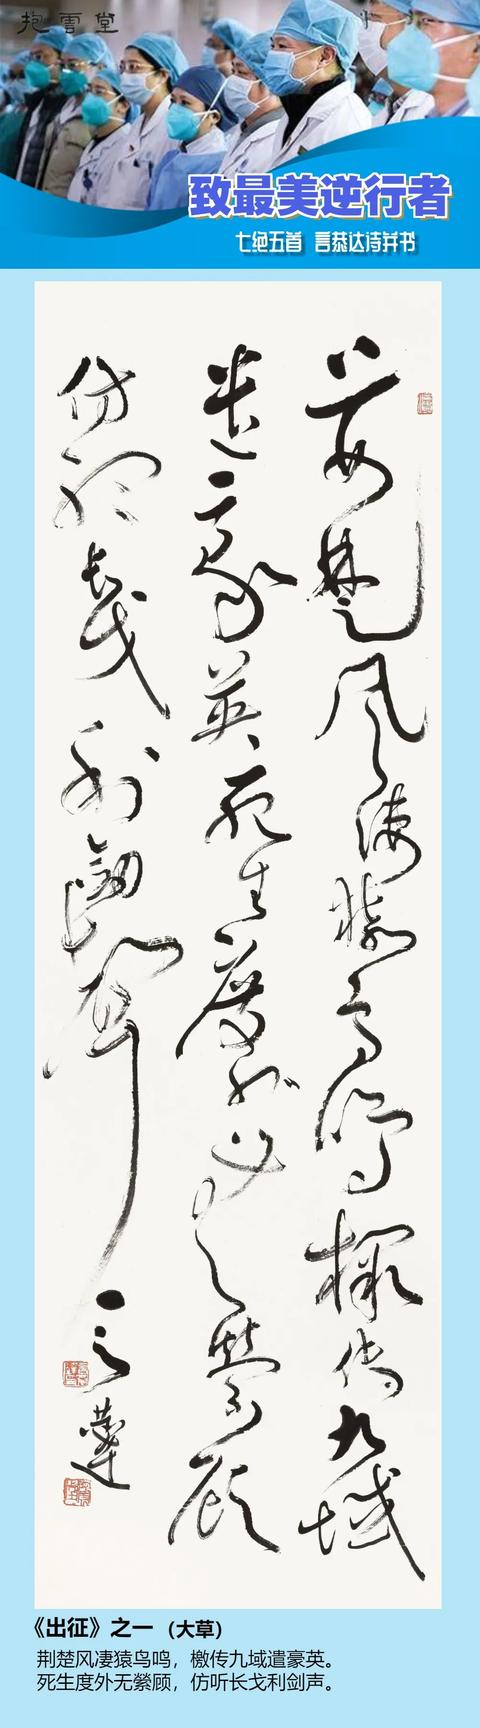 抱雲堂
致最美逆行者
七绝五首 言恭达诗并书
荆楚风凄猿鸟鸣檄传九域
遣豪英死生度外无萦顾
仿听长戈利剑声 言恭达
《出征》之一（大草）
荆楚风凄猿鸟鸣，檄传九域遣豪英。
死生度外无萦顾，仿听长戈利剑声。